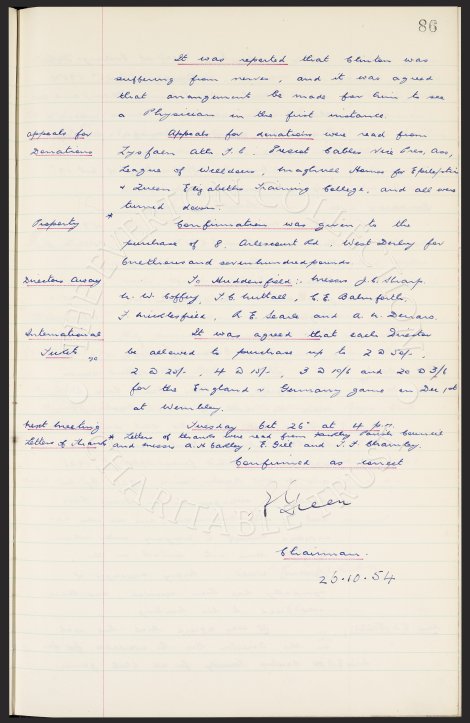 86
It was reported that Clinton was
suffering from nerves, and it was agreed
that arrangement be made for him to see
a Physician in the first instance.
Appeals for Donations
Appeals for donations were read from
Lysfaen Ath F.C. Prescot Cables Vice Pres, Ass,
League of Welldoers, Maghull Homes for Epileptics
& Queen Elizabeths Training College, and all were
turned down.
Property
* Confirmation was given to the
purchase of 8, Arlescourt Rd, West Derby for
One thousand and seven hundred pounds.
Directors Away
To Huddersfield:- Messrs J.C. Sharp.
N. W. Coffey, T.C. Nuttall, C.E. Balmforth.
F. Micklesfield, R E Searle and A. H. Denaro.
International Tickets
It was agreed that each Director
be allowed to purchase up to 2 @ 50/-,
2 @ 20/-, 4 @ 15/-, 3 @ 10/6 and 20 @ 3/6
for the England v Germany game on Dec 1st
at Wembley.
Next Meeting
Tuesday Oct 26th at 4 p.m.
Letters of Thanks
* Letters of thanks were read from Parish Council
and Messrs A. H. Oakley, E. Gill and T. F. Bramley
Confirmed as correct
Green
Chairman.
26.10.54
THE EVERTON COLLECTION
CHARITABLE TRUST